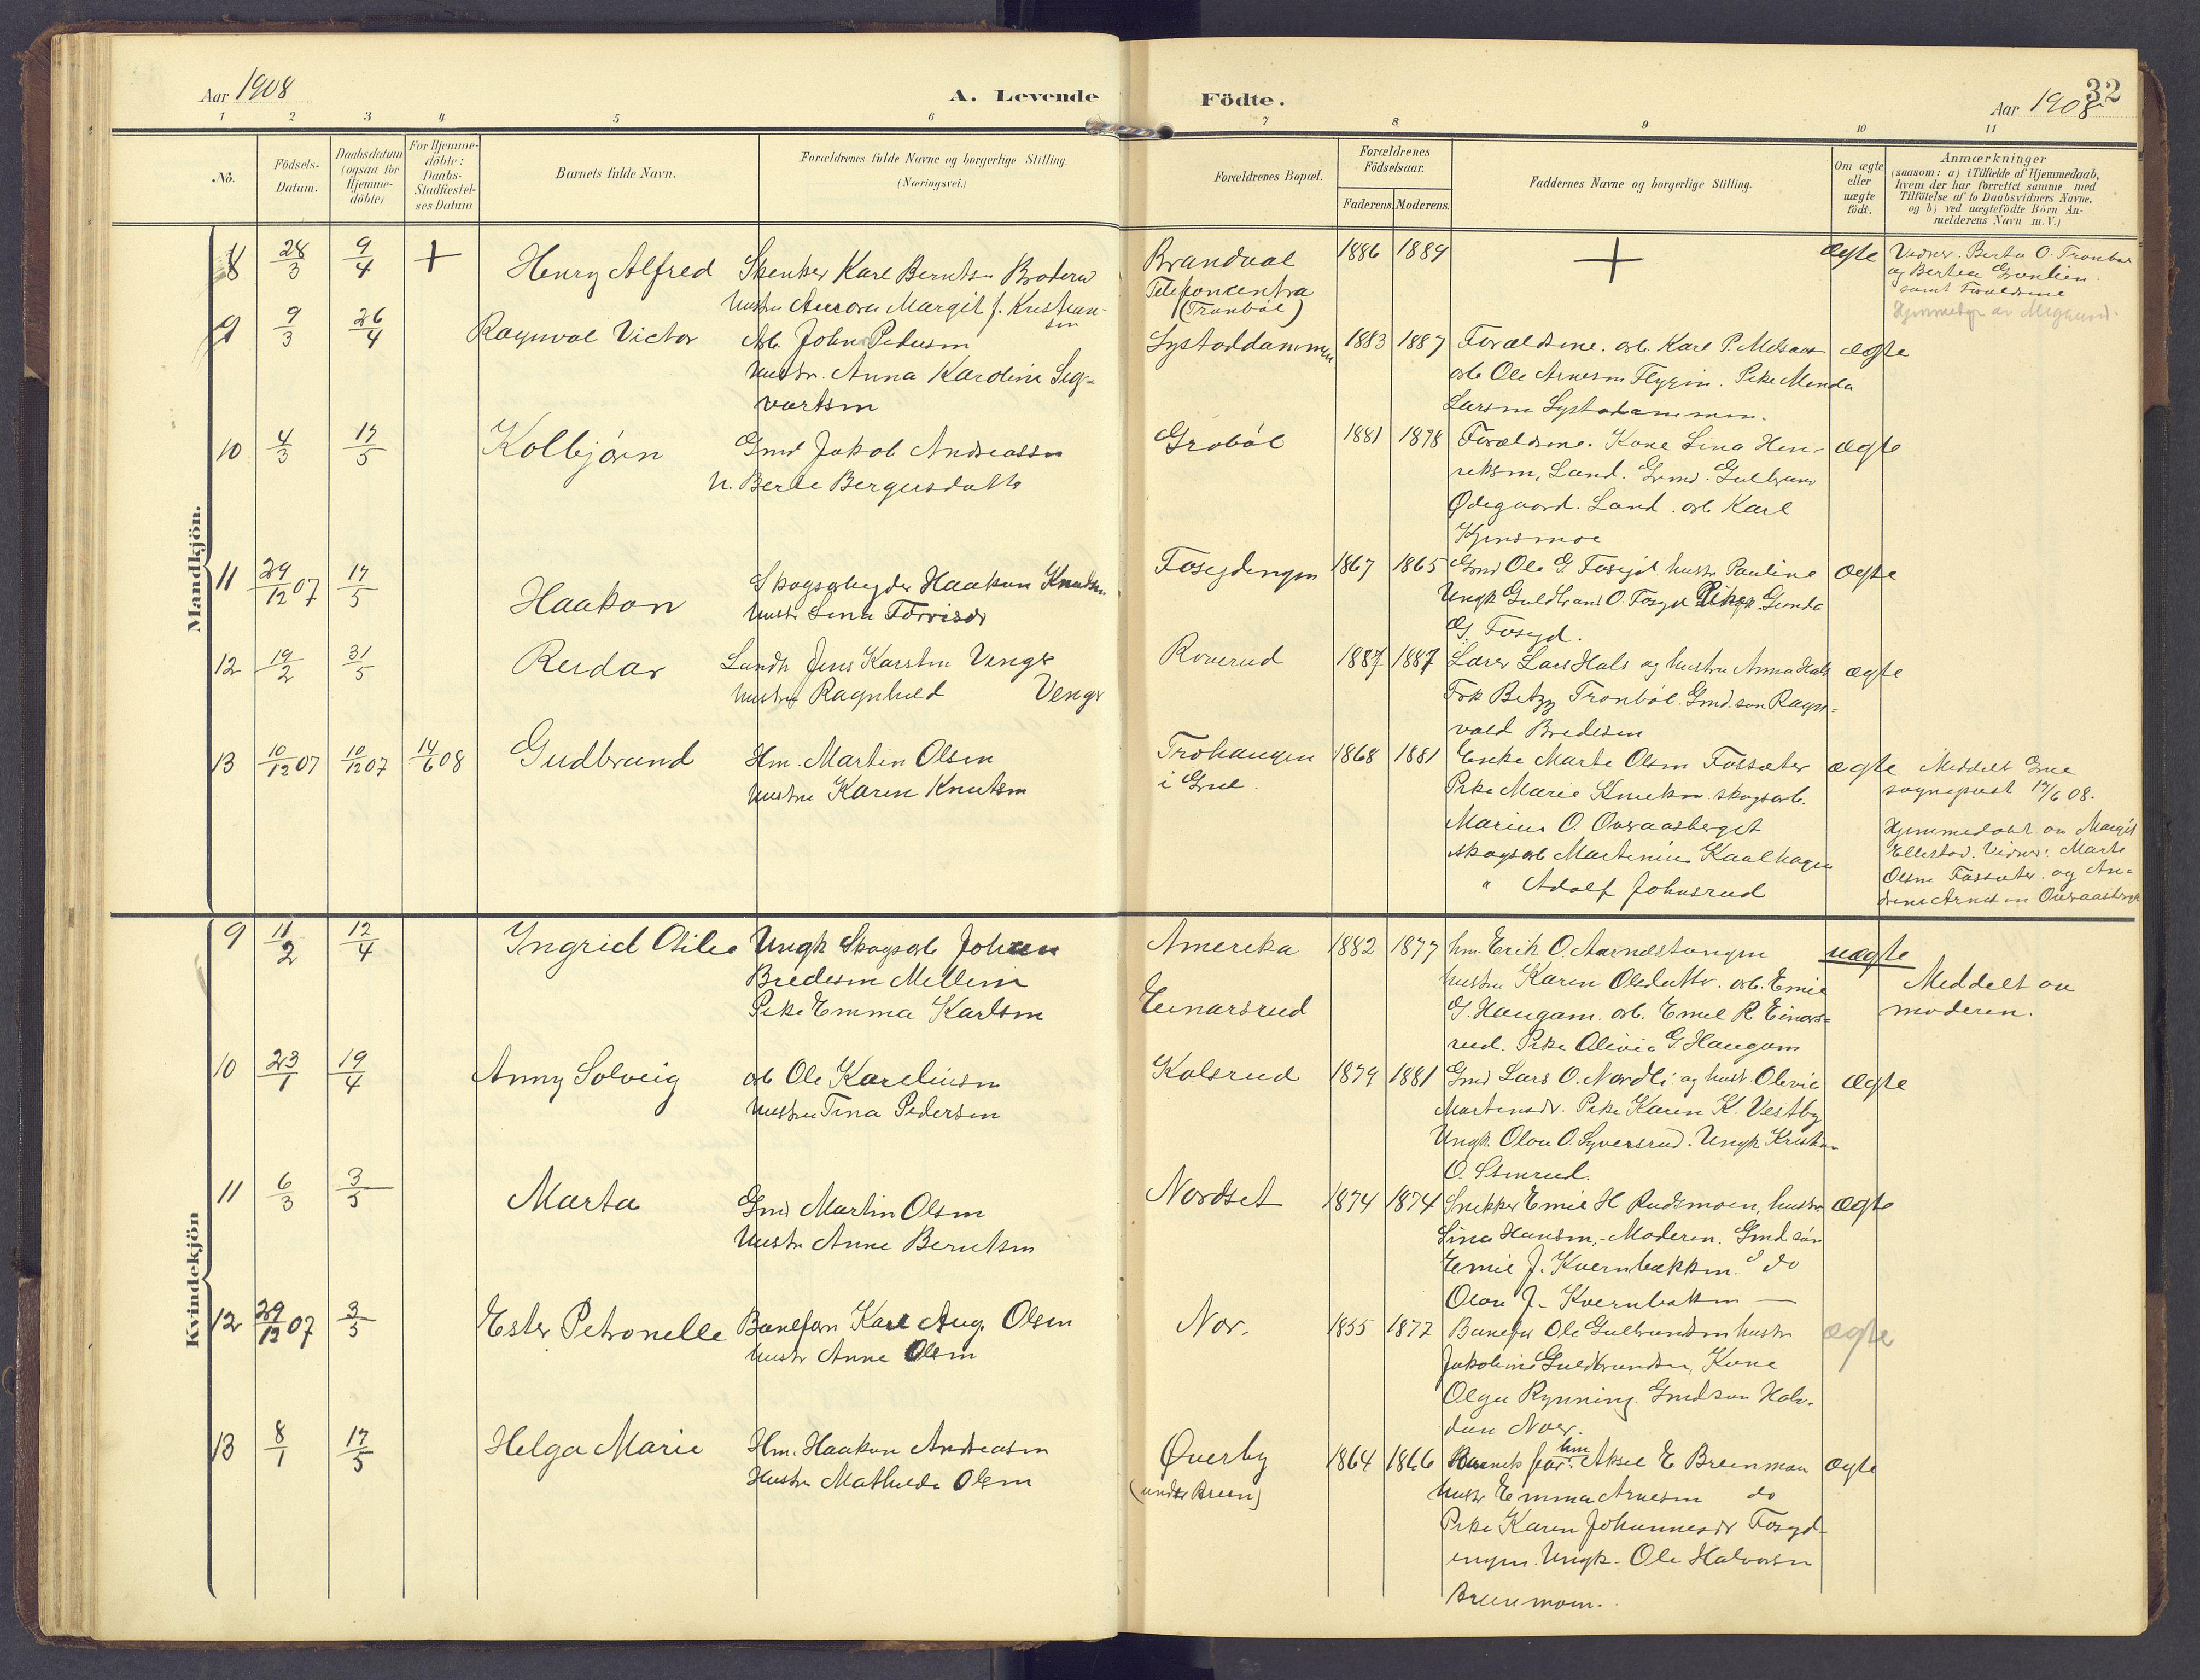 Aar 1908
A. Levende Födte.
32
Aar 1908
1 2 3 4 5 6 7 8 9 10 11
No.
Födsels-
Datum.
Daabsdatum
(ogsaa for
Hjemme-
döbte)
For Hjemme-
döbte:
Daabs-
Stadfæstel-
ses Datum
Barnets fulde Navn.
Forældrenes fulde Navne og borgerlige Stilling.
(Næringsvei.)
Forældrenes Bopæl.
Forældrenes
Födselsaar.
Faderens. Moderens.
Faddernes Navne og borgerlige Stilling.
Om ægte
eller
uægte
födt.
Anmærkninger
(saasom: a) i Tilfælde af Hjemmedaab,
hvem der har forrettet samme med
Tilföielse af to Daabsvidners Navne.
og b) ved uægtefödte Börn An-
melderens Navn m. V.)
Mandkjön.
8 28/3 9/4 + Henry Alfred
Karl
Hustru Aurora Margit J. Kristian-
sen
Brandval
Telefoncentra
(Tronböl)
1886 1889 + ægte
Vidner. Berta O. Tronböl
og Bertea
samt Forældrene
9 9/3 26/4 Ragnval Victor
Arb. John Pedersen
Hustr. Anna Karoline Sig-
vartsen
Systaddammen 1883 1887
Forældrene. arb. Karl P.
arb Ole Arnesen Pike Manda
Larsen Systadammen.
ægte
10 4/3 17/5 Kolbjörn
Gmd Jakob Andreassen
H. Berte Bergersdatter
Gröböl 1881 1878
Forældrene. Kone Lina Hen-
riksen, Land. Gmd. Gulbrand
Ødegaard. Land. arb Karl
ægte
11 29/12 07 17/5 Haakon
Skogsarbeyder Haakon Knudsen
Hustr Lina
1867 1865
Gmd Ole G. hustr Pauline
Ungk Guldbrand O. Gunda
G.
ægte
12 19/2 31/5 Reidar
Landh Jens Karsten Venger
hustru Ragnhild Venger
Roverud 1887 1887
Lærer Lars Hals og hustru Anna Hals
Frk Betzy Tronböl. Gmd. søn Ragn-
vald Bredesen
ægte
13 10/12 07 10/12 07 14/6 08 Gudbrand
Hm. Martin Olsen
Hustru Karen Knutsen
Trohaugen
i Grue.
1868 1881
Enke Marte Olsen Fossæter
Pike Marie Knutsen skogsarb.
Marius O. Overaasberget
skogsarb Martinius Kaalhagen
" Adolf Johnsrud
ægte
Meddelt Grue
sognepræst 17/6 08.
Hjemmedøbt av Margit
Ellestad. Vidner: Marte
Olsen Fossæter. og An-
drine Arnesen Overaasberget
Kvindekjön
9 11/2 12/4 Ingrid Otilie
Ungk Skogsarb Johan
Bredesen Mellem
Pike Emma Karlsen
Amerika
Einarsrud
1882 1877
hm. Erik O. Aarnestangen
hustru Karen Olsdatter. arb. Emil
G. Haugam. arb. Emil R Einars-
rud. Pike Olivia G. Haugam
uægte
Meddelt av
moderen.
10 23/1 19/4 Anny Solveig
arb Ole Kareliusen
Hustru Tina Pedersen
Kolsrud 1879 1881
Gmd Lars O. Nordli og hust Olivie
Martinsdr. Pike Karen K. Vestby
Ungk Olav O. Syversrud. Ungk Kristian
O. Stenrud.
ægte
11 6/3 3/5 Marta
Gmd Martin Olsen
Hustr Anne Berntsen
Nordset 1874 1874
Snekker Emil H Rudsmoen, hustr
Lina Hansen, - Moderen. Gmd søn
Emil J. Kvernbækken. do
Olav J. Kvernbækken —
ægte
12 29/12 07 3/5 Ester Petronelle
Baneform Karl Aug. Olsen
hustr Anne Olsen
Nor. 1855 1877
Banefor Ole Gulbrandsen hustr
Jakobine Guldbrandsen, Kone
Olga Rynning Gmdsøn Halv-
dan Noer.
ægte
13 8/1 17/5 Helga Marie
Hm. Haakon Andreasen
Hustru Mathilde Olsen
Øverby
(under Breen)
1864 1866
Barnets far. hm Aksel E Breenmoen
hustr Emma Arnesen do
Pike Karen Johannesdr Fosyd-
engen. Ungk. Ole Halvorsen
Breenmoen.
ægte